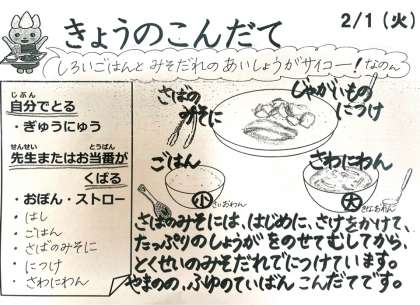 きょうのこんだて
2/1（火）
しろいごはんと みそだれの あいしょうがサイコー！なのん
じぶん
自分でとる
・ぎゅうにゅう
せんせい とうばん
先生またはお当番が
くばる
・おぼん・ストロー
・はし
・ごはん
・さばのみそに
・につけ
・さわにわん
さばの
みそに
じゃがいもの
につけ
ごはん
小
ちいさいおわん
さわにわん
大
おおきなおわん
さばのみそには、はじめに、さけをかけて、
たっぷりのしょうがをのせてむしてから、
とくせいのみそだれでにつけています。
やまのの、ふゆのていばん こんだてです。